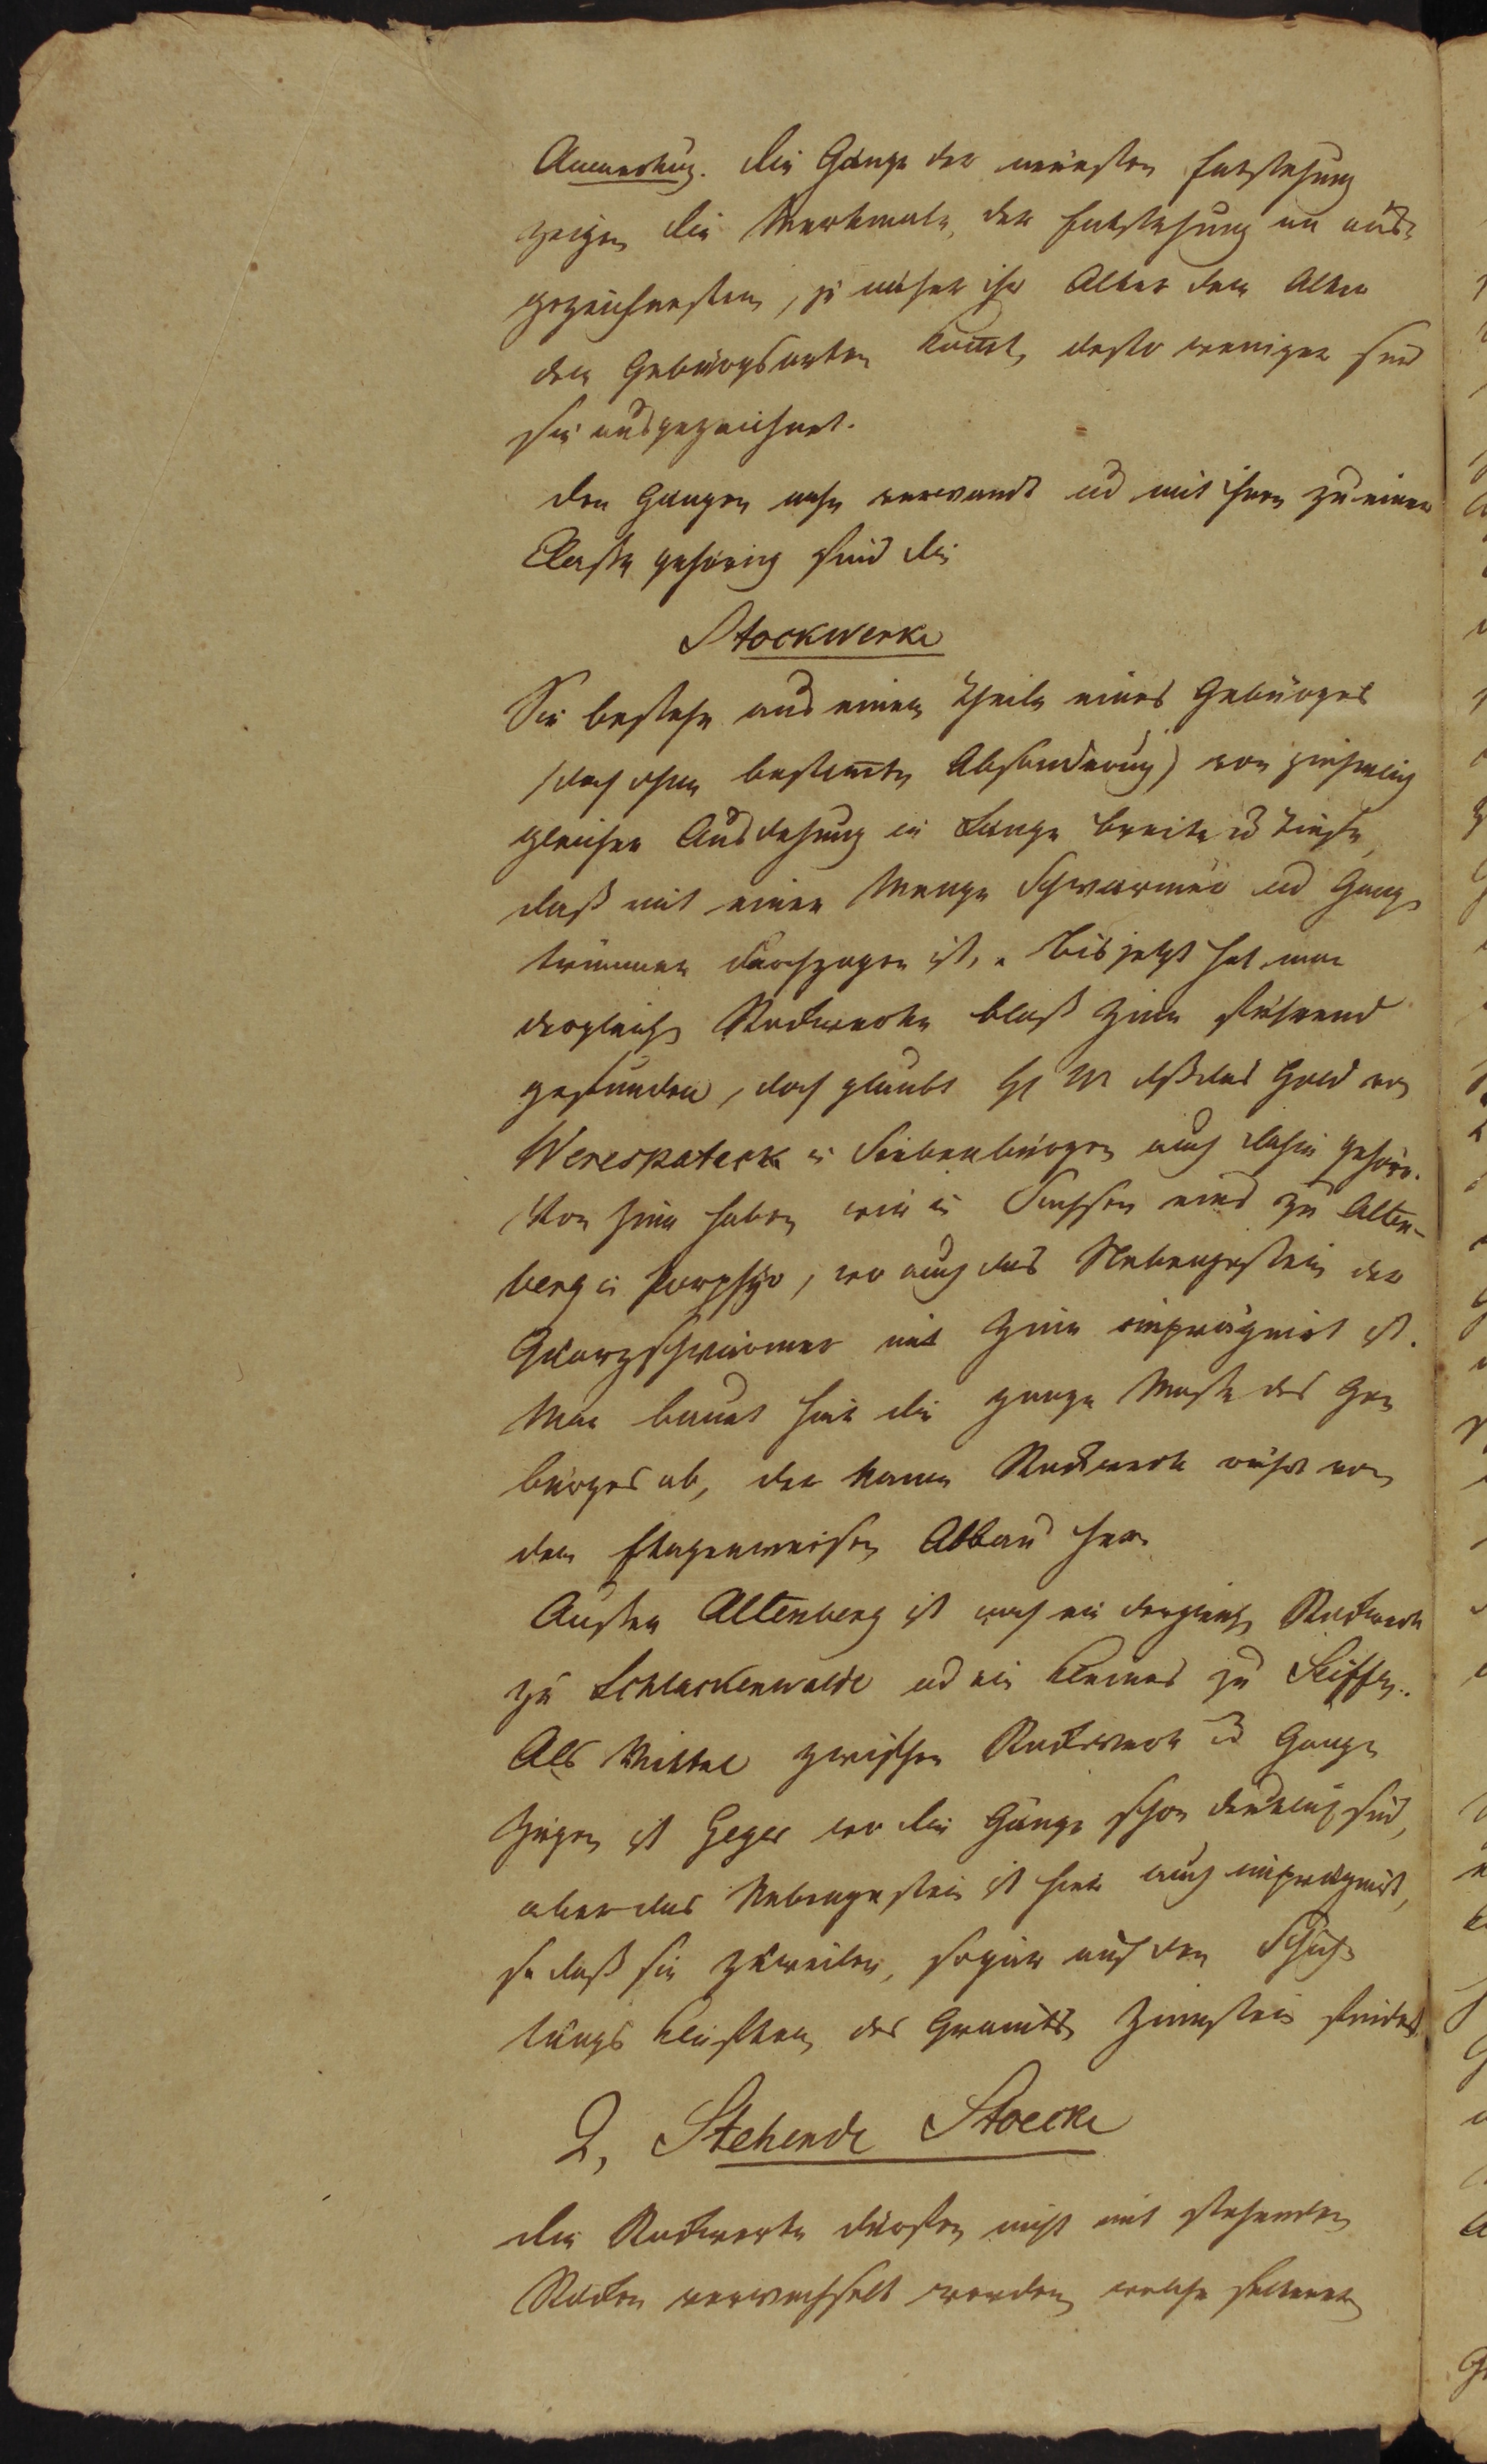 Anmerkug. Die Gänge der neuesten Entstehung
zeigen die Merkmale der Entstehung am aus-
gezeichnesten, je näher ihr Alter dem Alter
der Gebürgsarten kom̅t, desto weniger sind
sie ausgezeichnet.
Den Gängen nahe verwandt ud mit ihnen zu einer
Classe gehörig sind die
Stockwerke
Sie bestehn aus einem Theile eines Gebürges
(doch ohne bestim̅te Absonderug) von ziehmlich
gleicher Ausdehnung in Länge breite ud Tiefe,
daß mit einer Menge Schwärmer ud Gang-
trümmer durchzogen ist. Bis jetzt hat man
dergleich Stockwerke bloß Zinn führend
gefunden, doch glaubt H W dß das Gold von
Werespateck in Siebenbürgen auch dahin gehöre.
Von Zinn haben wir in Sachsen eins zu Alten-
berg in Porphyr, wo auch das Nebengestein der
Quarzschwärmer mit Zinn imprägnirt ist.
Man bauet hier die ganze Masse des Ge-
bürges ab, der Name Stockwerk rührt von
dem Etagenweisen Abbau her.
Ausser Altenberg ist noch ein dergleich Stockwerk
zu Schlackenwalde ud ein kleines zu Seiffen.
Als Mittel zwischen Stockwerk ud Gänge
Zügen ist Geyer wo die Gänge schon deutlich sind,
aber das Nebengestein ist hier auch imprägnirt,
so daß sie zuweilen, sogar auf den Schich-
tungs klüften des Granits Zinnstein findet
2, Stehende Stoecke
Die Stockwerke dürfen nicht mit stehenden
Stöcken verwechselt werden, welche seltener